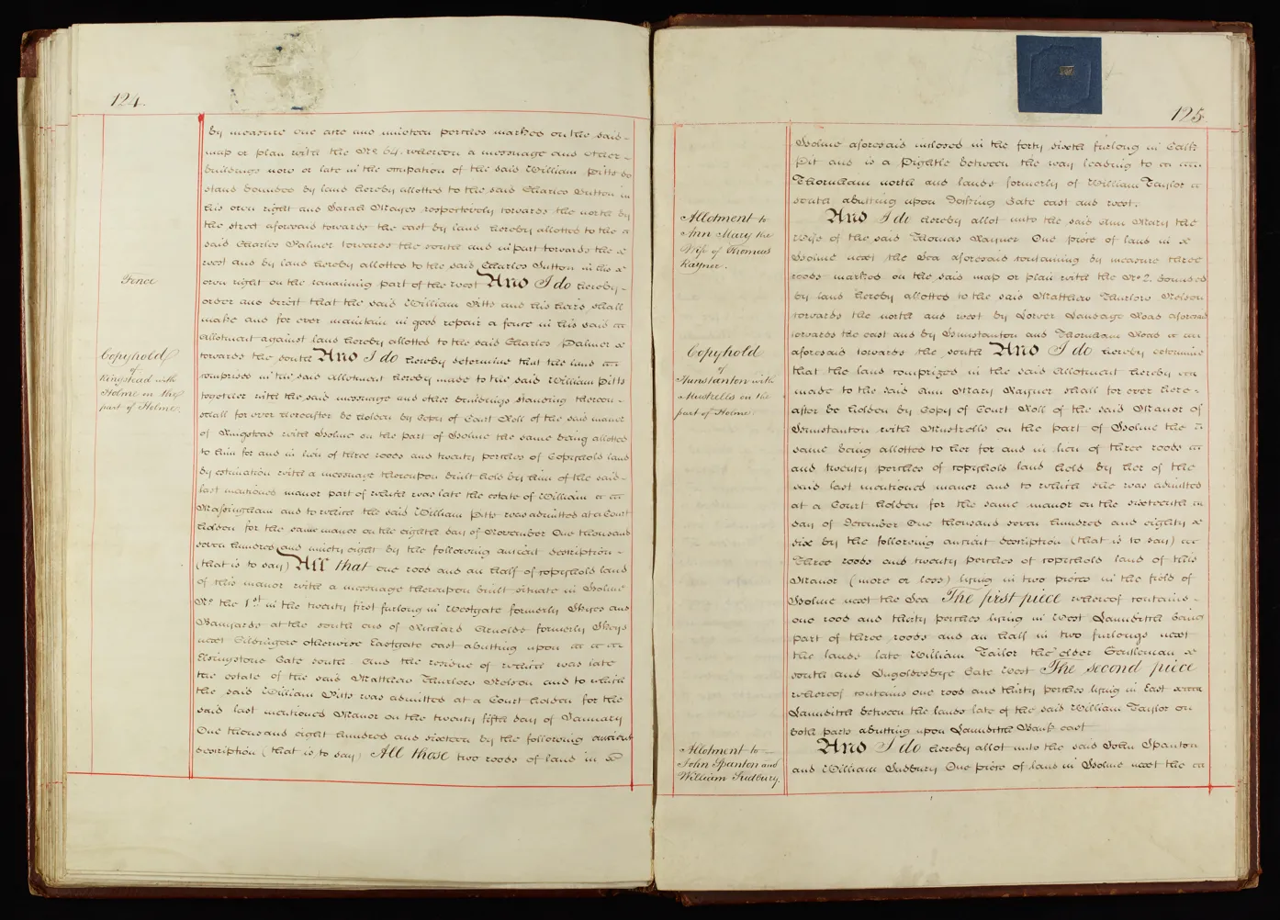 124.
by measure one acre nine perches marked on the said
map or plan with the No. 64. whereon a messuage and other
buildings now or late in the occupation of the said William Pitts do
stand bounded by land hereby allotted to the said Charles Sutton in
his own right and Sarah Mayes respectively towards the north by
the street aforesaid towards the east by land hereby allotted to the
said Charles Palmer towards the south and in part towards the
west and by land hereby allotted to the said Charles Sutton in his
Fence
own right on the remaining part of the west And I do hereby
order and direct that the said William Pitts and his heirs shall
make and for ever maintain in good repair a fence in his said
allotment against land hereby allotted to the said Charles Palmer
Copyhold
of
Ringstead with
Holme on the
part of Holme.
towards the south And I do hereby determine that the land
comprised in the said Allotment hereby made to the said William Pitts
together with the said messuage and other buildings standing thereon
shall for ever hereafter be holden by Copy of Court Roll of the said manor
of Ringstead with Holme on the part of Holme the same being allotted
to him for and in lieu of three roods and twenty perches of Copyhold land
by estimation with a messuage thereupon built held by him of the said
last mentioned manor part of which was late the estate of William
Massingham and to which the said William Pitts was admitted at a Court
holden for the same manor on the eighth day of November One thousand
seven hundred and ninety eight by the following ancient description
(that is to say) All that one rood and an half of copyhold land
of this manor with a messuage thereupon built situate in Holme
No. the 1st in the twenty first furlong in Westgate formerly Skyes and
Banyards at the south end of Richard Arnolds formerly Skeys
next otherwise Eastgate east abutting upon
Gate south And the residue of which was late
the estate of the said Matthew Thurlow Nelson and to which
the said William Pitts was admitted at a Court holden for the
said last mentioned Manor on the twenty fifth day of January
One thousand eight hundred and sixteen by the following ancient
description (that is to say) All those two roods of land in
125
Holme aforesaid inclosed in the forty sixth furlong in Calk
Pit and is a Pightle between the way leading to
Thornham north and lands formerly of William Taylor
south abutting upon Docking Gate east and west.
Allotment to
Ann Mary the
Wife of Thomas
Rayner.
And I do hereby allot unto the said Ann Mary the
wife of the said Thomas Rayner One piece of land in
Holme next the Sea aforesaid containing by measure three
roods marked on the said map or plan with the No. 2. bounded
by land hereby allotted to the said Matthew Thurlow Nelson
towards the north and west by Lower Road aforesaid
towards the east and by Hunstanton and Thornham Road
Copyhold
of
Hunstanton with
Mustrells on the
part of Holme.
aforesaid towards the south And I do hereby determine
that the land comprized in the said Allotment hereby
made to the said Ann Mary Rayner shall for ever here-
after be holden by Copy of Court Roll of the said Manor of
Hunstanton with Mustrells on the part of Holme the
same being allotted to her for and in lieu of three roods
and twenty perches of copyhold land held by her of the
said last mentioned manor and to which she was admitted
at a Court holden for the same manor on the sixteenth
day of December One thousand seven hundred and eighty
six by the following ancient description (that is to say)
Three roods and twenty perches of copyhold land of this
Manor (more or less) lying in two pieces in the field of
Holme next the Sea The first piece whereof contains
one rood and thirty perches lying in West Launditch being
part of three roods and an half in two furlongs next
the lands late William Tailor the elder Gentleman
south and Ingoldesbye Gate west The second piece
whereof contains one rood and thirty perches lying in East
Launditch between the lands late of the said William Taylor on
both parts abutting upon Launditch Bank east
Allotment to
John Spanton and
William Sudbury.
And I do hereby allot unto the said John Spanton
and William Sudbury One piece of land in Holme next the